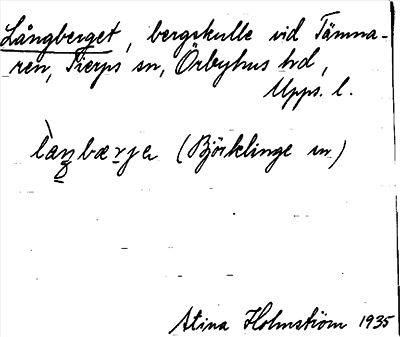 Långberget, bergskulle vid Tämna-
ren, Tierps sn, Örbyhus hd,
Upps. l.
(Björklinge sn)
Stina Holmström 1935